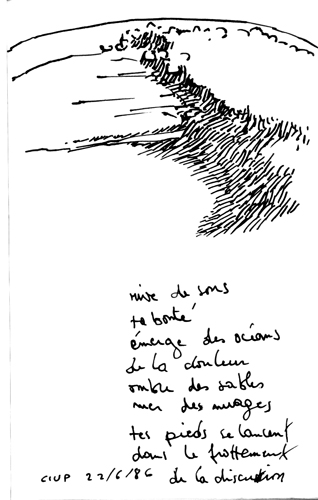 rive de sons
ta bonté
émerge des océans
de la douleur
ombre des sables
mer des nuages
tes pieds se lancent
dans le frottement
de la discussion
CIUP 22/6/86